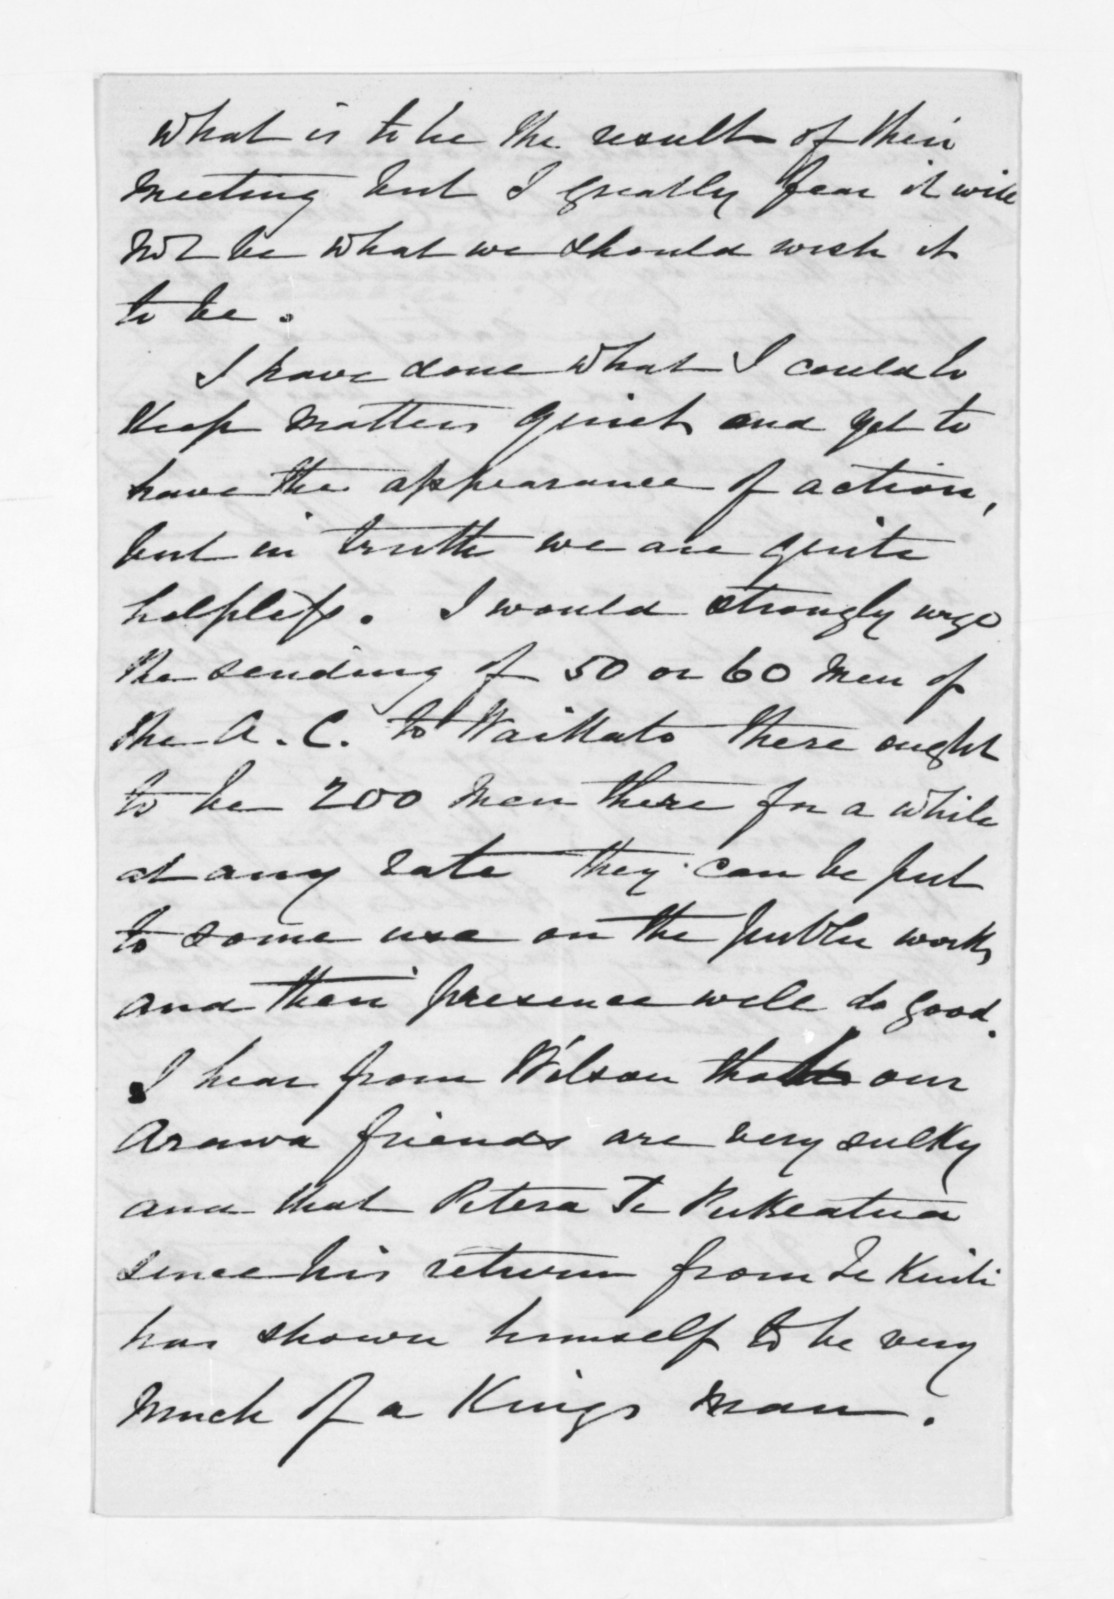 what is to be the result of their
meeting but I greatly fear it will
not be what we should wish it
to be.
I have done what I could to
keep matters quiet and yet to
have the appearance of action,
but in truth we are quite
helpless. I would strongly urge
the sending of 50 or 60 men of
the A. C. to Waikato there ought
to be 200 men there for a while
at any rate they can be put
to some use on the public works
and their presence will do good.
I hear from Wilson that our
Arawa friends are very sulky
and that Petera Te Pukeatua
since his return from Te Kuiti
has shown himself to be very
much of a Kings man.